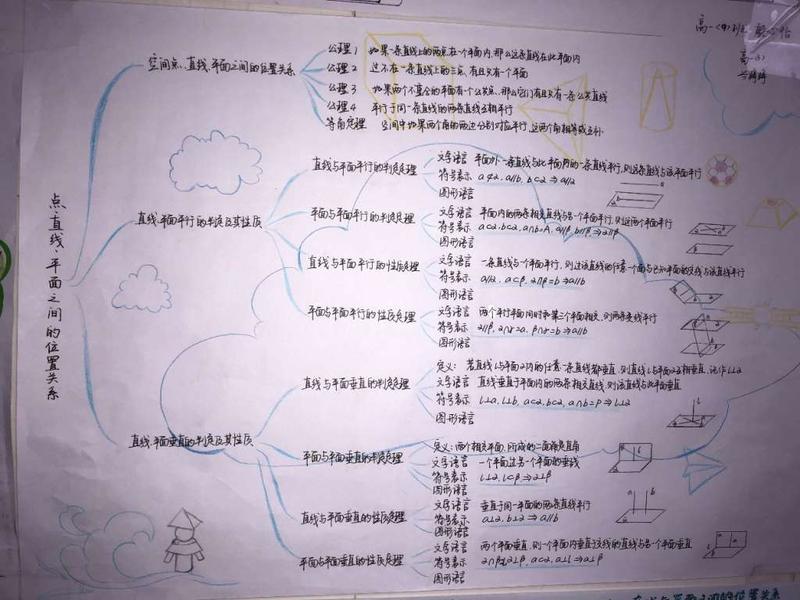 高一
点、直线、平面之间的位置关系
空间点、直线、平面之间的位置关系
公理1 如果一条直线上的两点在一个平面内,那么这条直线在此平面内
公理2 过不在一条直线上的三点,有且只有一个平面
公理3 如果两个不重合的平面有一个公共点,那么它们有且只有一条公共直线
公理4 平行于同一条直线的两条直线互相平行
等角定理 空间中如果两个角的两边分别对应平行,这两个角相等或互补
直线、平面平行的判定及其性质
直线与平面平行的判定定理
文字语言 平面外一条直线与此平面内的一条直线平行,则这条直线与该平面平行
符号表示 a⊄2, a∥b, b⊂2⇒a∥2
图形语言
平面与平面平行的判定定理
文字语言 平面内的两条相交直线与另一个平面平行,则这两个平面平行
符号表示 a⊂2, b⊂2, a∩b=A, a∥β, b∥β⇒2∥β
图形语言
直线与平面平行的性质定理
文字语言 一条直线与一个平面平行,则过该直线的任意一个面与已知平面的交线与该直线平行
符号表示 a∥2, a⊂β, 2∩β=b⇒a∥b
图形语言
平面与平面平行的性质定理
文字语言 两个平行平面同时和第三个平面相交,则两条交线平行
符号表示 2∥β, 2∩r=a, β∩r=b⇒a∥b
图形语言
直线、平面垂直的判定及其性质
直线与平面垂直的判定定理
定义: 若直线l与平面2内的任意一条直线都垂直,则直线l与平面2互相垂直,记作l⊥2
文字语言 直线垂直于平面内的两条相交直线,则该直线与此平面垂直
符号表示 l⊥a, l⊥b, a⊂2, b⊂2, a∩b=P⇒l⊥2
图形语言
平面与平面垂直的判定定理
定义:两个相交平面,所成的二面角是直角
文字语言 一个平面过另一个平面的垂线
符号表示 l⊥2, l⊂β⇒2⊥β
图形语言
直线与平面垂直的性质定理
文字语言 垂直于同一平面的两条直线平行
符号表示 a⊥2, b⊥2⇒a∥b
图形语言
平面与平面垂直的性质定理
文字语言 两个平面垂直,则一个平面内垂直于交线的直线与另一个平面垂直
符号表示 a⊂2, a⊥l⇒a⊥β
图形语言